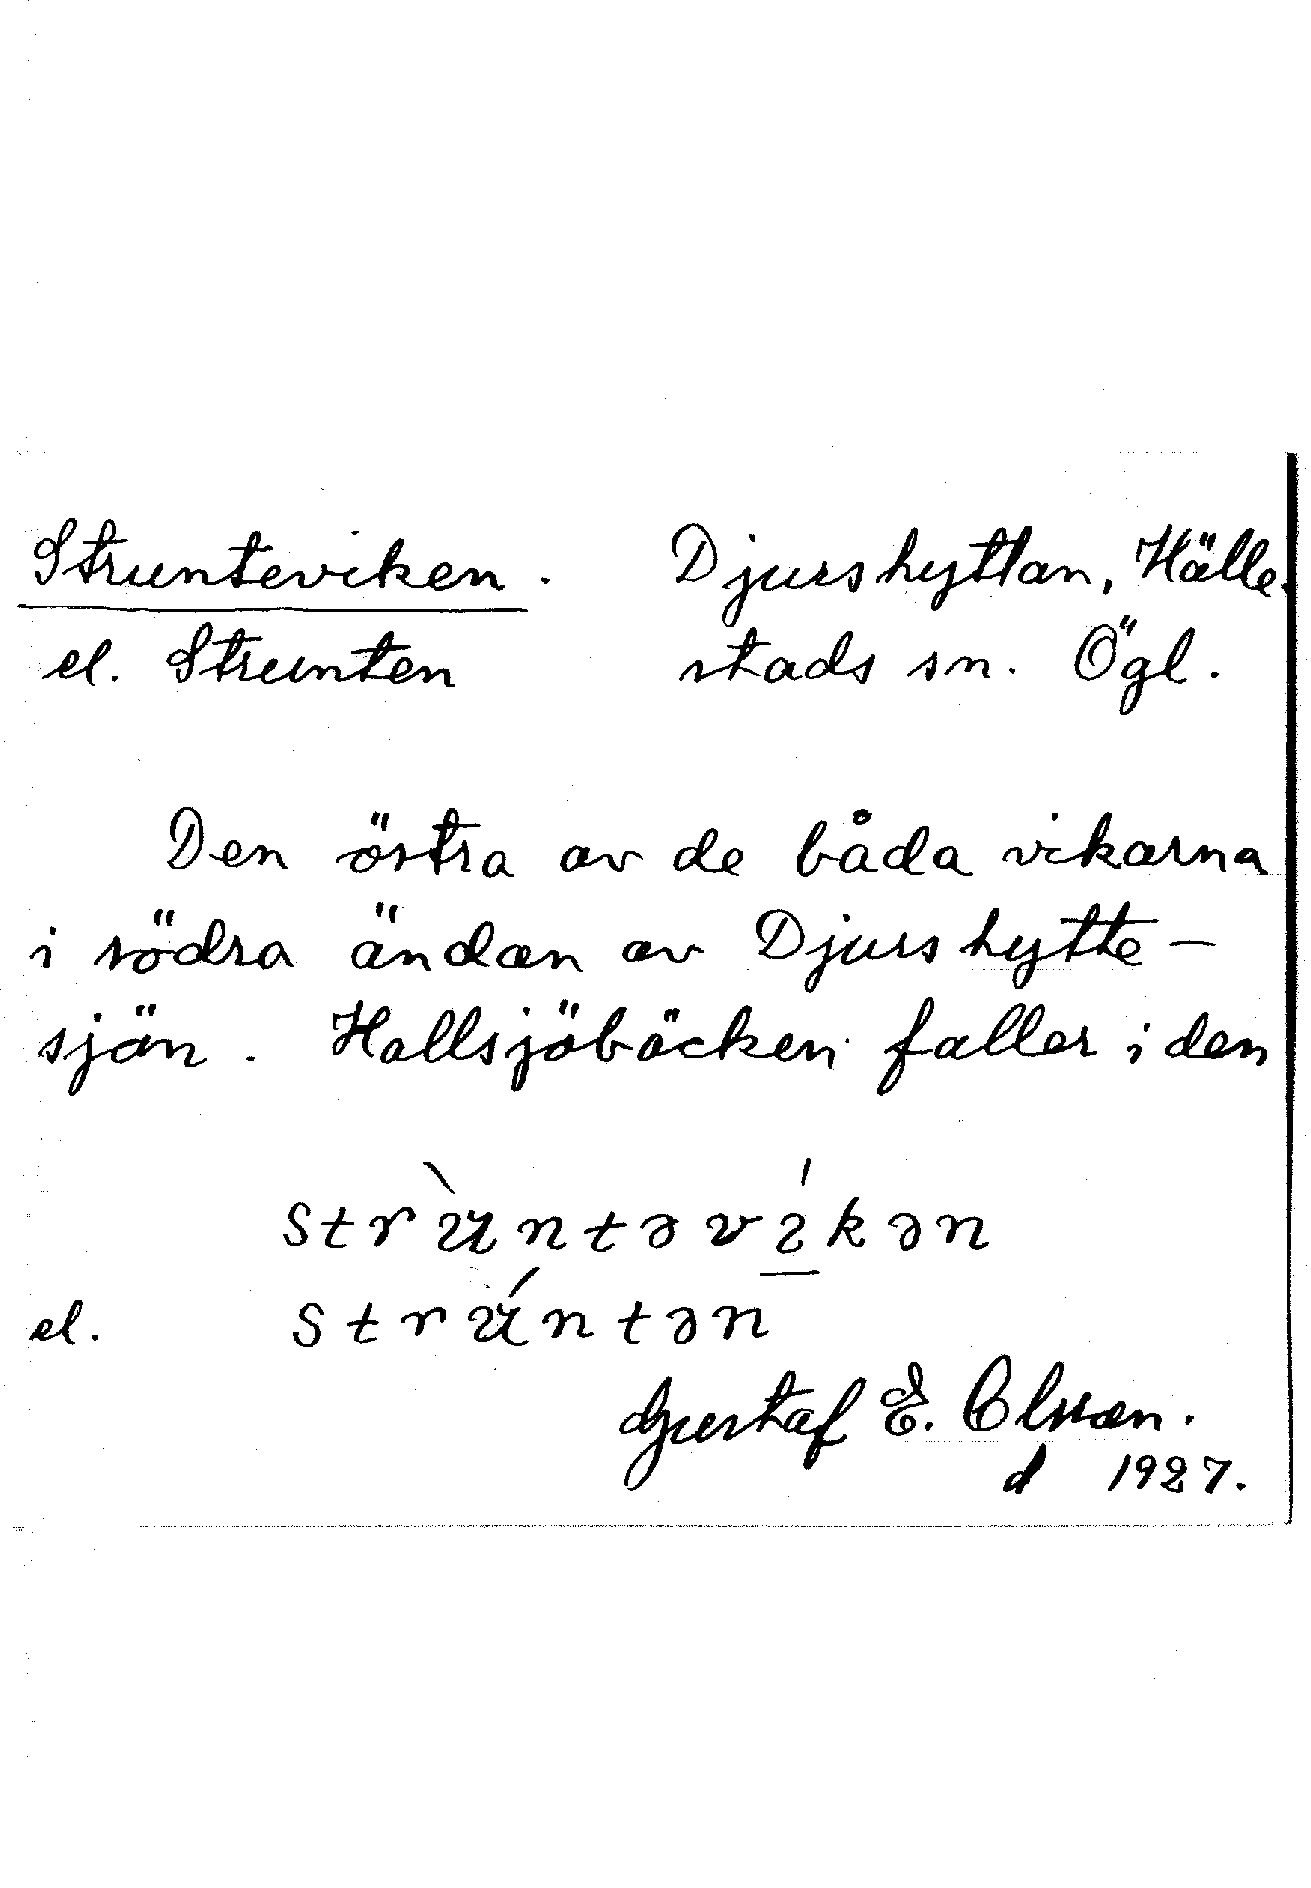 Strunteviken. Djurshyttan, Hälle-
el. Strunten stads sn. Ögl.
Den östra av de båda vikarna
i södra ändan av Djurshytte-
sjön. Hallsjöbäcken faller i den
strùntəvíkən
el. strúntən
Gustaf E. Olsson.
d 1927.